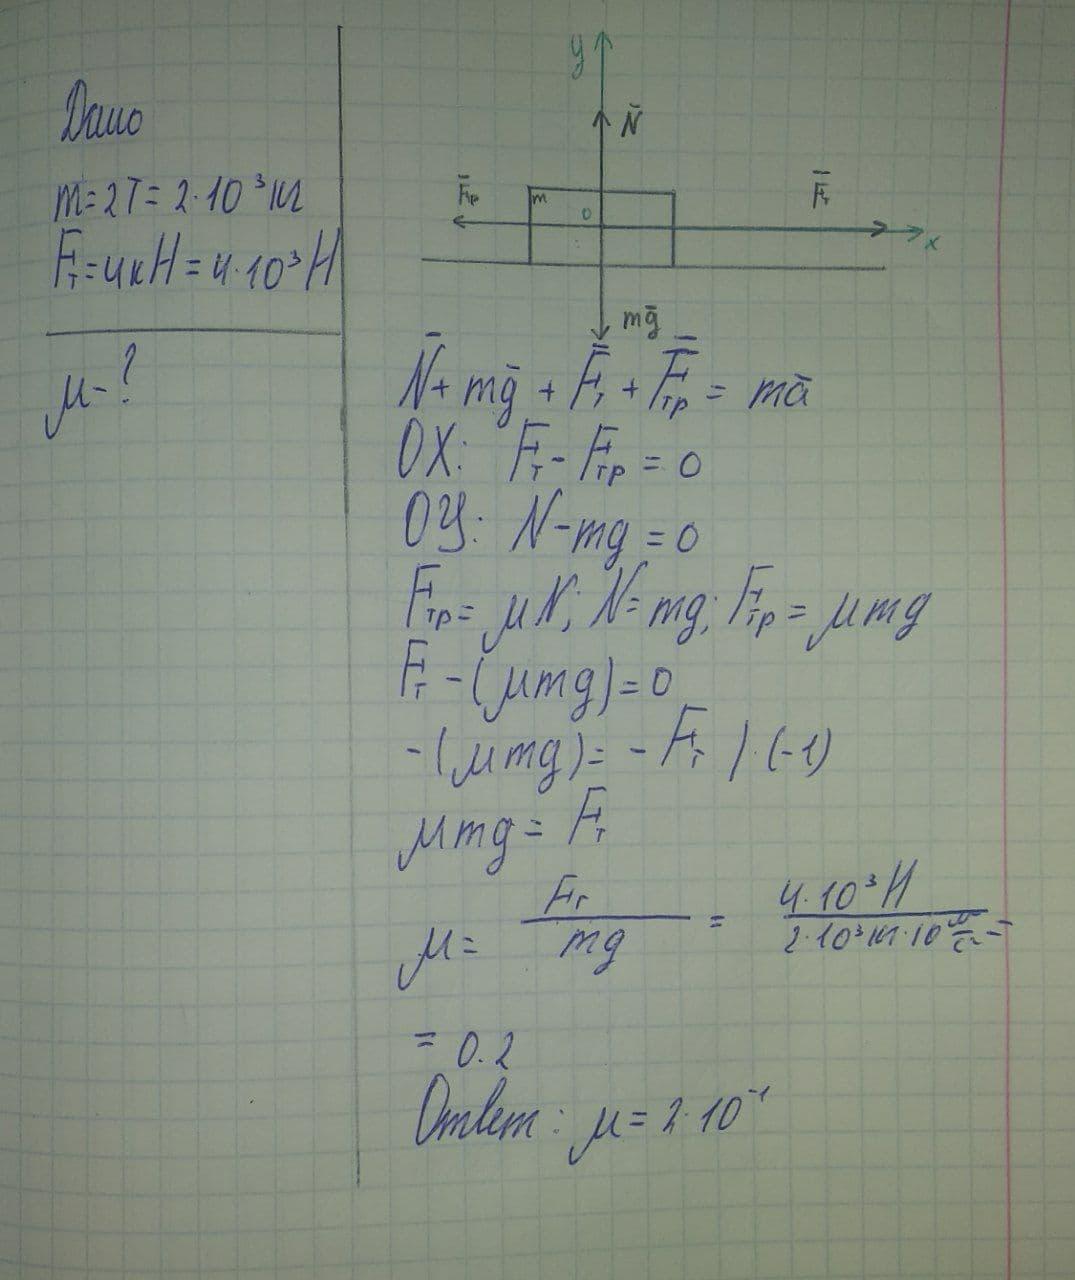 Дано
m=2T= 2·10³кг
Fт=4кН=4·10³Н
μ-?
y
N̄
F̄тр
m
0
F̄т
x
mḡ
N̄+mḡ+F̄т+F̄тр= mā
OX: Fт-Fтр=0
OY: N-mg=0
Fтр=μN; N=mg; Fтр=μmg
Fт-(μmg)=0
-(μmg)=-Fт /·(-1)
μmg=Fт
μ= Fт/mg = 4·10³Н/2·10³кг·10 м/с² =
= 0.2
Ответ: μ=2·10⁻¹